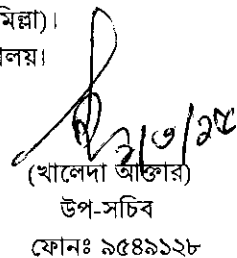 মিল্লা)।
লয়।
২/৩/১৫
(খালেদা আক্তার)
উপ-সচিব
ফোনঃ ৯৫৪৯১২৮